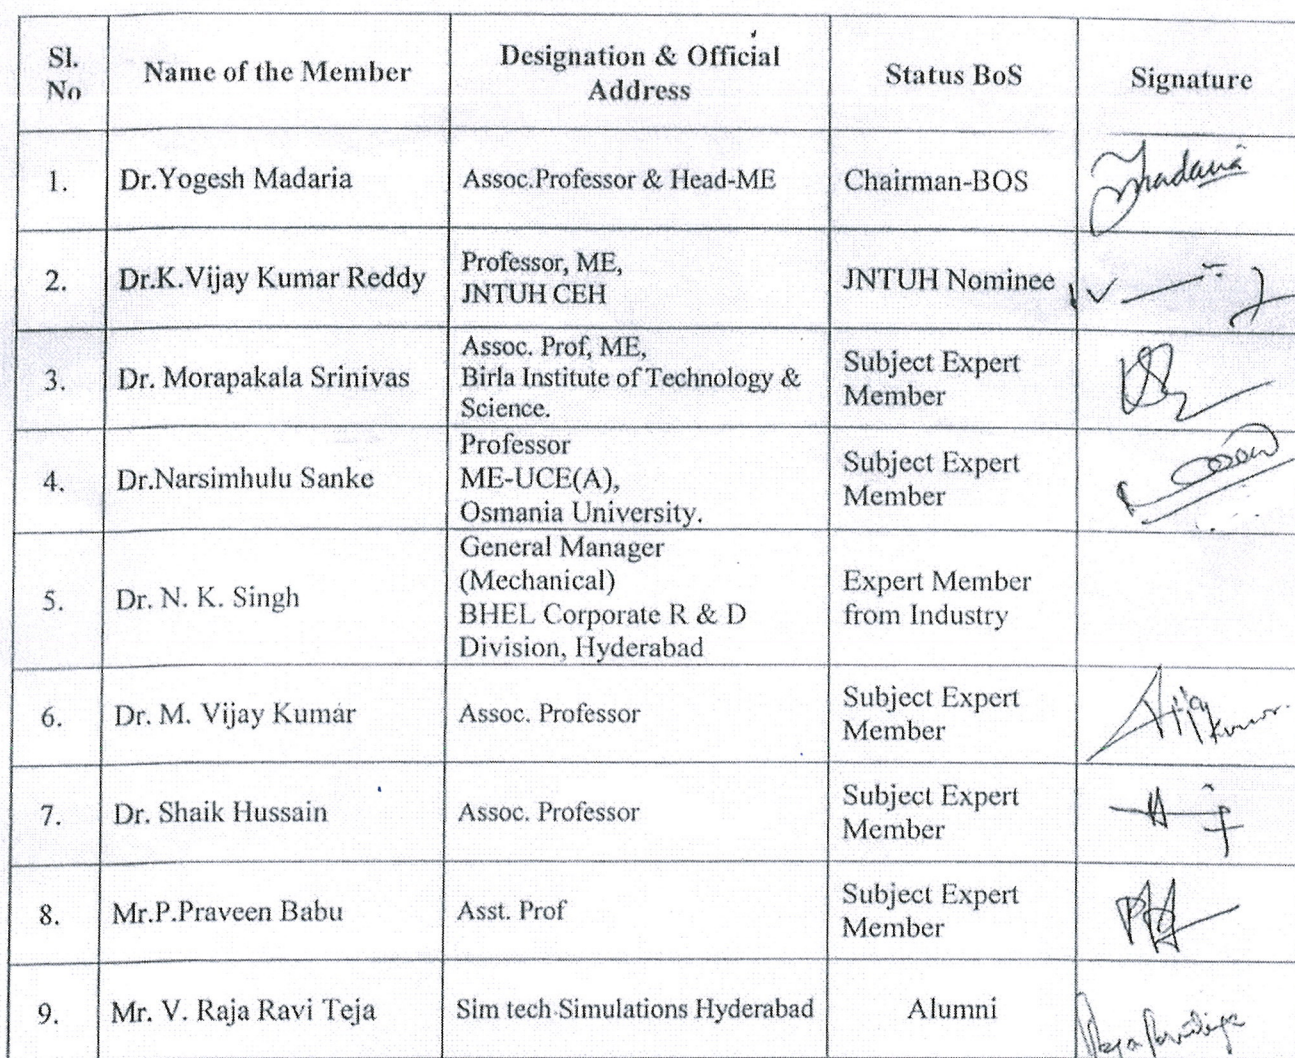 Sl.
No
Name of the Member
Designation & Official
Address
Status BoS
Signature
1.
Dr.Yogesh Madaria
Assoc.Professor & Head-ME
Chairman-BOS
2.
Dr.K.Vijay Kumar Reddy
Professor, ME,
JNTUH CEH
JNTUH Nominee
3.
Dr. Morapakala Srinivas
Assoc. Prof, ME,
Birla Institute of Technology &
Science.
Subject Expert
Member
4.
Dr.Narsimhulu Sanke
Professor
ME-UCE(A),
Osmania University.
Subject Expert
Member
5.
Dr. N. K. Singh
General Manager
(Mechanical)
BHEL Corporate R & D
Division, Hyderabad
Expert Member
from Industry
6.
Dr. M. Vijay Kumar
Assoc. Professor
Subject Expert
Member
Vijay
Kumar.
7.
Dr. Shaik Hussain
Assoc. Professor
Subject Expert
Member
8.
Mr.P.Praveen Babu
Asst. Prof
Subject Expert
Member
9.
Mr. V. Raja Ravi Teja
Sim tech Simulations Hyderabad
Alumni